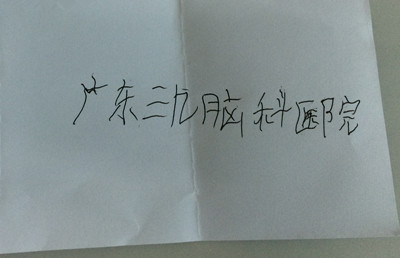 广东三九脑科医院